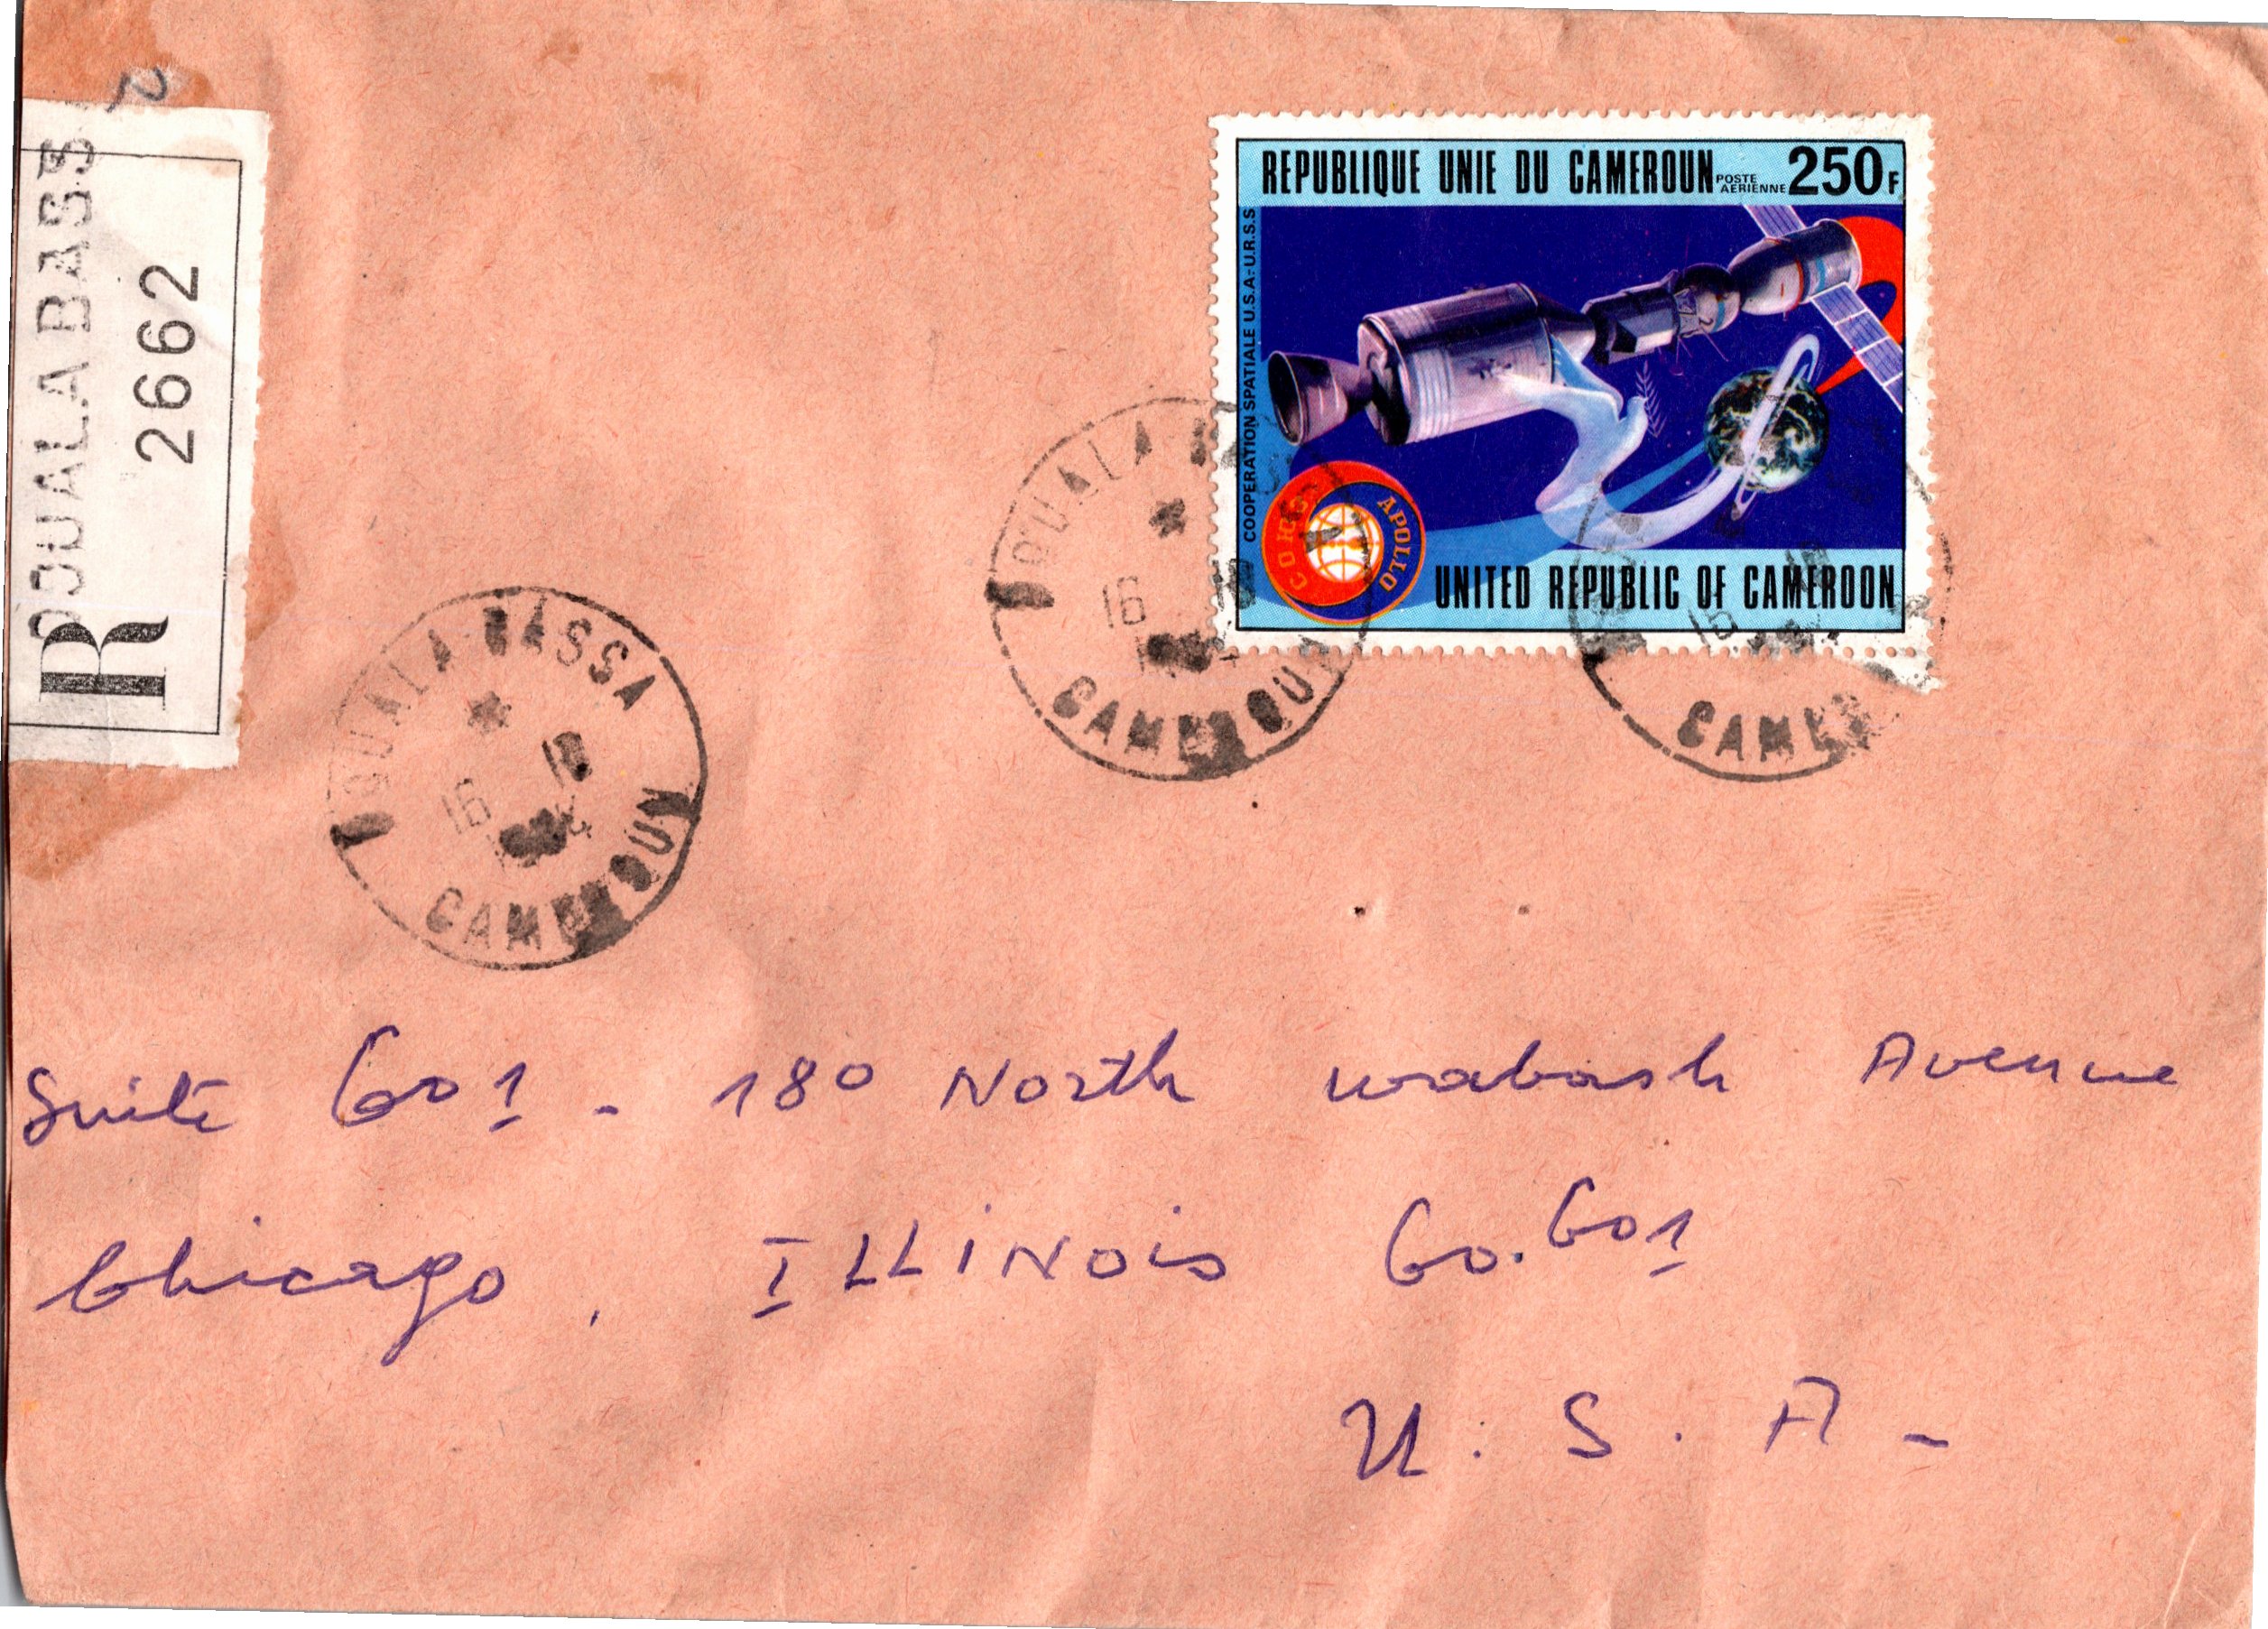 DOUALA BASS
R 2662
REPUBLIQUE UNIE DU CAMEROUN POSTE AERIENNE 250F
COOPERATION SPATIALE U.S.A.-U.R.S.S
APOLLO
UNITED REPUBLIC OF CAMEROON
DOUALA
16
CAMEROUN
16
CAME
DOUALA-BASSA
16 10
CAMEROUN
Suite 601 - 180 North wabash Avenue
Chicago, ILLINOis 60.601
U.S.A-